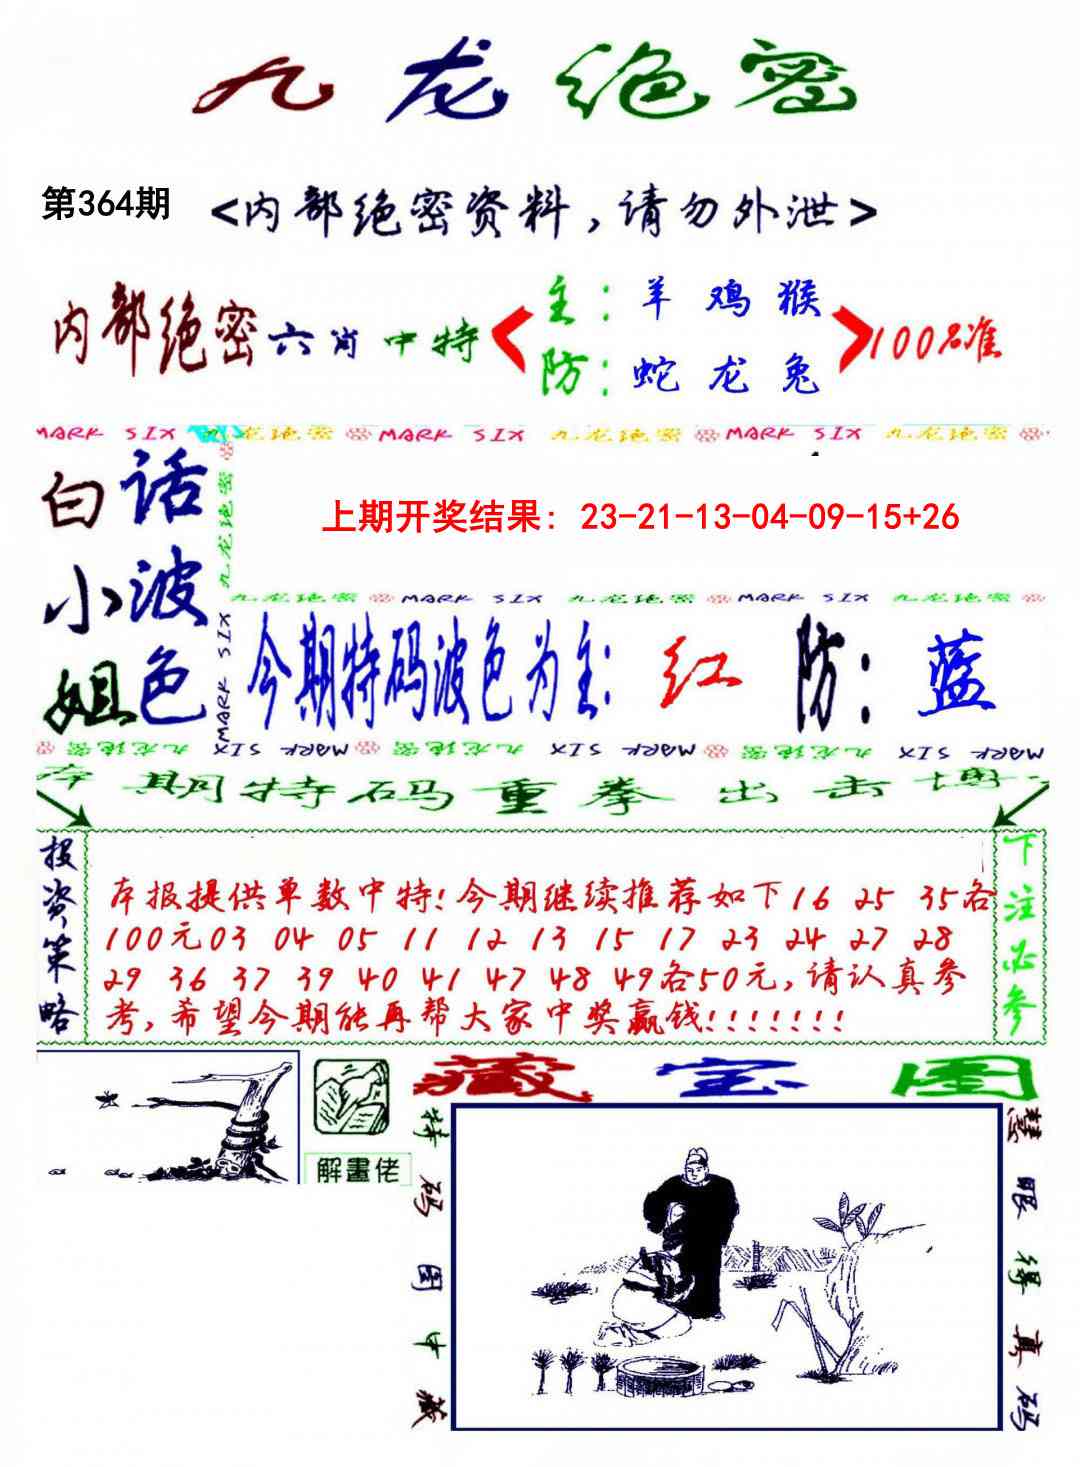 九龙绝密
第364期
<内部绝密资料，请勿外泄>
内部绝密六肖中特
主：羊 鸡 猴
防：蛇 龙 兔
100%准
MARK SIX 九龙绝密 MARK SIX 九龙绝密 MARK SIX 九龙绝密
白小姐
话波色
九龙绝密
MARK SIX
上期开奖结果: 23-21-13-04-09-15+26
九龙绝密 MARK SIX 九龙绝密 MARK SIX 九龙绝密
今期特码波色为主: 红 防: 蓝
九龙绝密 MARK SIX 九龙绝密 MARK SIX 九龙绝密 MARK SIX
本期特码重拳出击博
投资策略
本报提供单数中特!今期继续推荐如下16 25 35各
100元03 04 05 11 12 13 15 17 23 24 27 28
29 36 37 39 40 41 47 48 49各50元,请认真参
考,希望今期能再帮大家中奖赢钱!!!!!!!
下注必参
解畫佬
藏宝图
特码图中藏
慧眼得真码